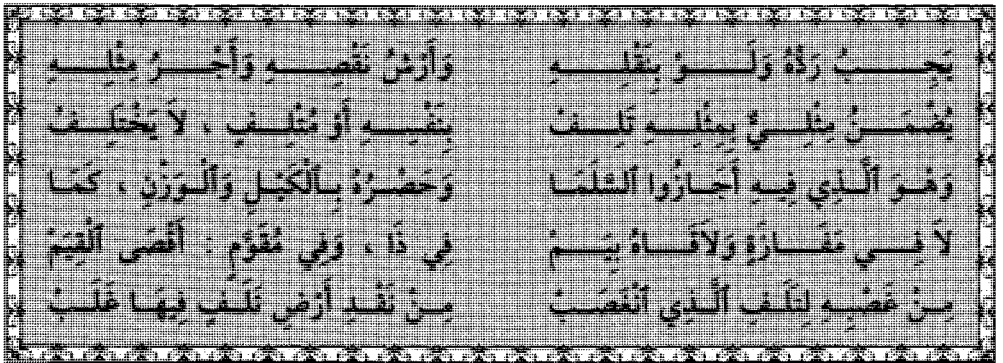 يَجِبُ رَدُّهُ وَلَوْ بِنَقْلِهِ وَأَرْشُ نَقْصِهِ وَأَجْرُ مِثْلِهِ
يُضْمَنُ مِثْلِيٌّ بِمِثْلِهِ تَلِفْ بِنَفْسِهِ أَوْ مُتْلِفٍ ، لاَ يَخْتَلِفْ
وَهْوَ ٱلَّذِي فِيهِ أَجَازُوا ٱلسَّلَمَا وَحَصْرُهُ بِٱلْكَيْلِ وَٱلْوَزْنِ ، كَمَا
لاَ فِي مَفَازَةٍ وَلاَقَاهُ بِيَمْ فِي ذَا ، وَفِي مُقَوَّمٍ : أَقْصَى ٱلْقِيَمْ
مِنْ غَصْبِهِ لِتَلَفِ ٱلَّذِي ٱنْغَصَبْ مِنْ نَقْدِ أَرْضِ تَلَفٍ فِيهَا غَلَبْ